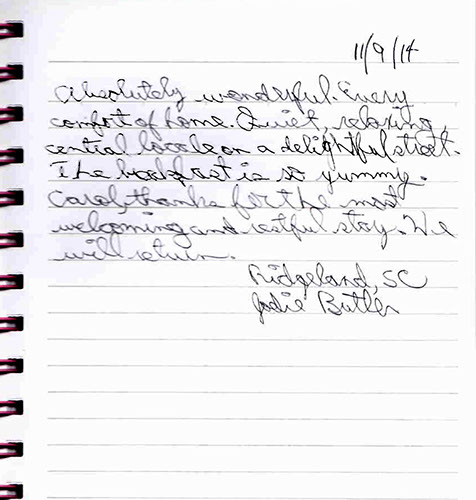 11/9/14
Absolutely wonderful. Every
comfort of home. Quiet, relaxing,
central locale on a delightful street.
The breakfast is so yummy.
Carol, thanks for the most
welcoming and restful stay. We
will return.
Ridgeland, SC
Jodie Butler